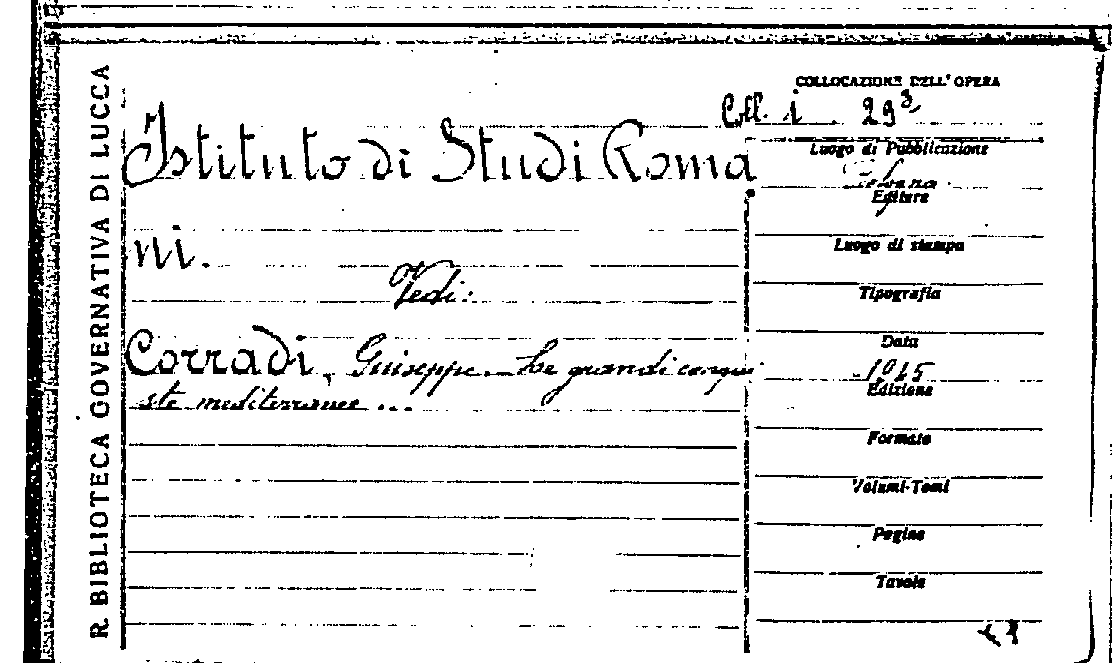 R. BIBLIOTECA GOVERNATIVA DI LUCCA
COLLOCAZIONE DELL'OPERA
Coll. i 29³
Istituto di Studi Roma
ni.
Vedi:
Corradi, Giuseppe. Le grandi conqui
ste mediterranee ...
Luogo di Pubblicazione
Editore
Luogo di stampa
Tipografia
Data
1945
Edizione
Formato
Volumi-Tomi
Pagine
Tavole